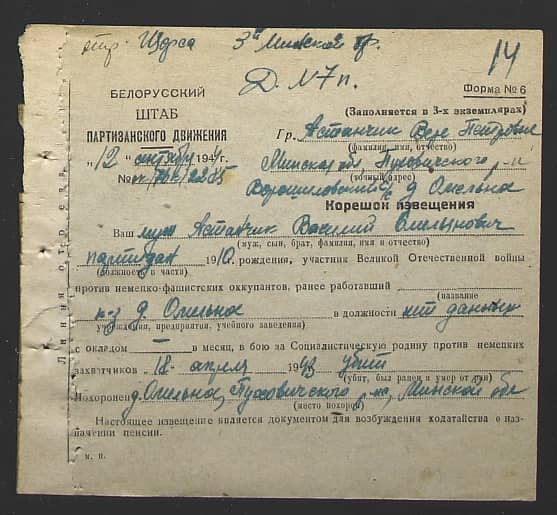 отр. Щорса 3й Минской бр.
14
Д. №7п.
БЕЛОРУССКИЙ
ШТАБ
ПАРТИЗАНСКОГО ДВИЖЕНИЯ
„12" сентября 1944 г.
№
Форма № 6
(Заполняется в 3-х экземплярах)
Гр. Астанчик Вере Петровне
(фамилия, имя, отчество)
Минская обл, Пуховичского р-н
(точный адрес)
Ворошиловский с/с д Омельно
Корешок извещения
Ваш муж Астанчик Василий Емельянович
(муж, сын, брат, фамилия, имя и отчество)
партизан 1910 рождения, участник Великой Отечественной войны
(должность в части)
против немецко-фашистских оккупантов, ранее работавший
(название
к-з д. Омельно в должности нет данных
учреждения, предприятия, учебного заведения)
с окладом — в месяц, в бою за Социалистическую родину против немецких
захватчиков 18 апреля 1943 убит
(убит, был ранен и умер от ран)
Похоронен д. Омельно, Пуховичского р-на, Минской обл
(место похорон)
Настоящее извещение является документом для возбуждения ходатайства о назначении пенсии.
м. п.
Линия отреза